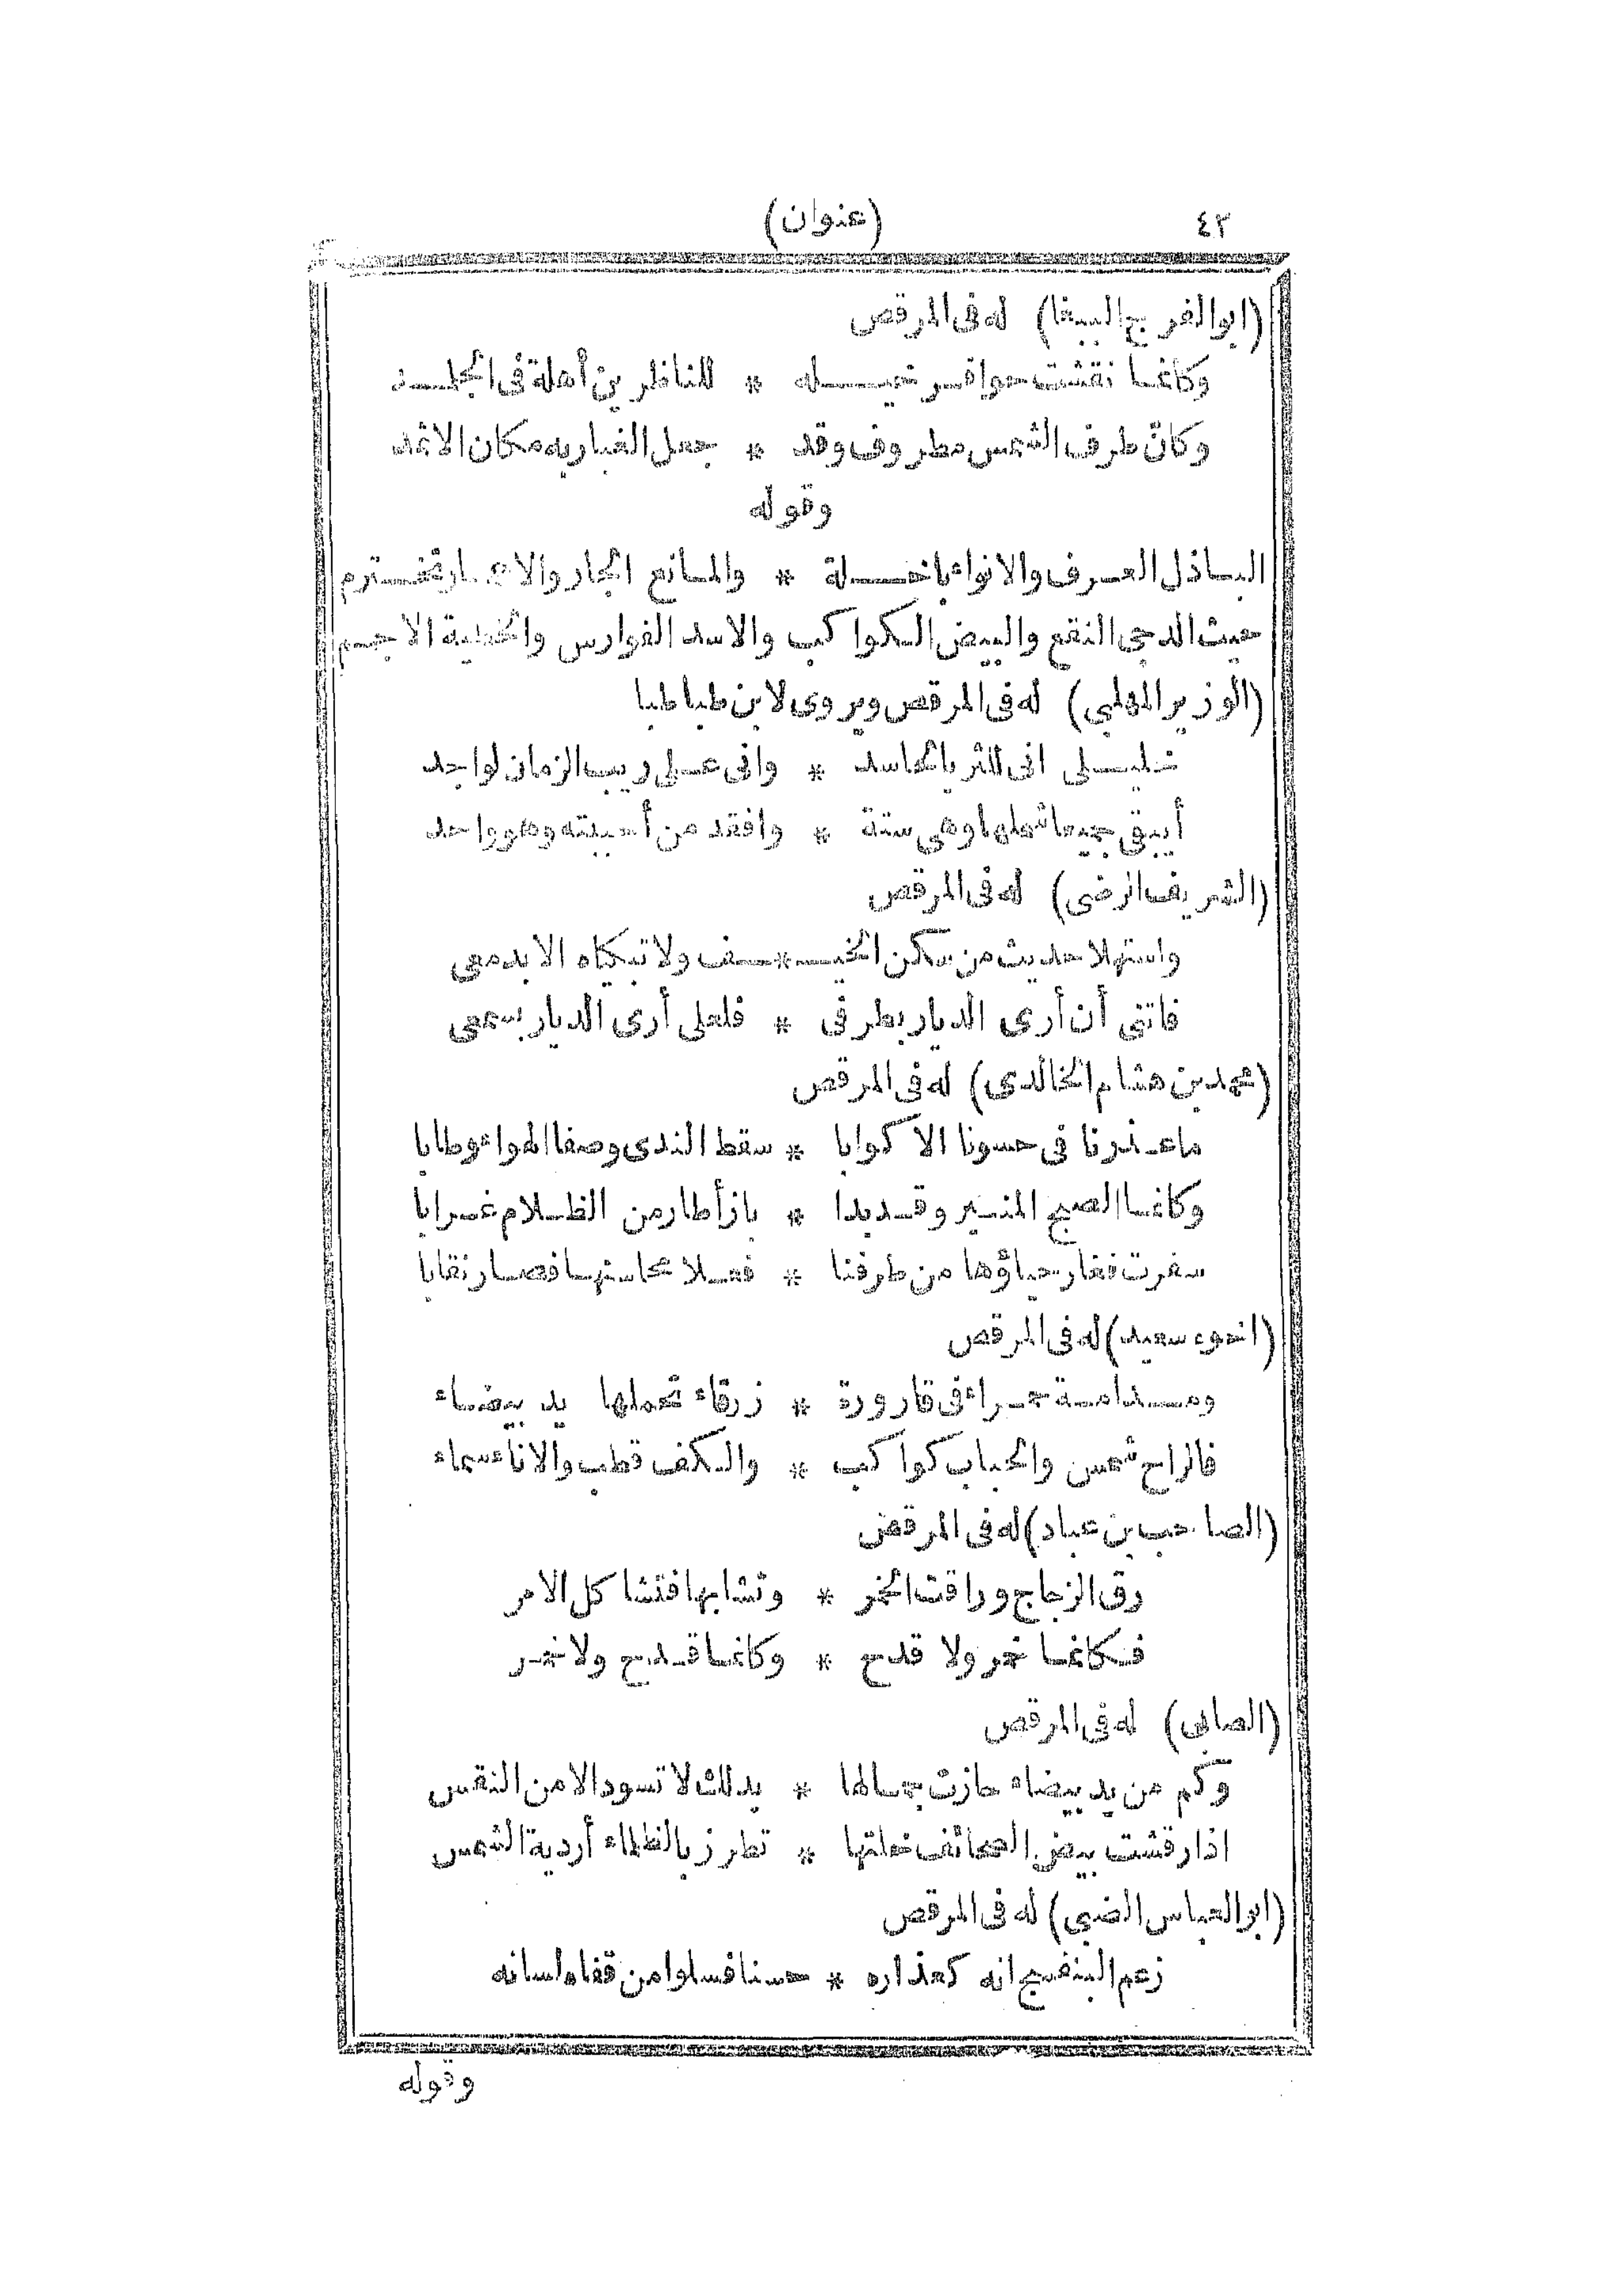 ٤٢
(عنوان)
(ابوالفرج الببغا) له فى المرقص
وكأنما نقشت حوافر خيله * للناظرين أهلة فى الجلمد
وكأن طرف الشمس مطروف وقد * جعل الغبار به مكان الاثمد
وقوله
الباذل العرف والانواء باخلة * والمانع الجار والاعمار تخترم
حيث الدجى النقع والبيض الكواكب والاسد الفوارس والخطية الاجم
(الوزير المهلبى) له فى المرقص ويروى لابن طباطبا
خليلى انى للثريا لحاسد * وانى على ريب الزمان لواجد
أيبقى جميعا شملها وهى ستة * وافقد من أحببته وهو واحد
(الشريف الرضى) له فى المرقص
واستهلا حديث من سكن الخيـ * ـف ولا تبكاه الا بدمعى
فاتنى أن أرى الديار بطرفى * فلعلى أرى الديار بسمعى
(محمد بن هشام الخالدى) له فى المرقص
ما عذرنا فى حسونا الاكوابا * سقط الندى وصفا الهواء وطابا
وكأنما الصبح المنير وقد بدا * باز أطار من الظلام غرابا
سفرت فغار حياؤها من طرفنا * فعلا محاسنها فصار نقابا
(اخوه سعيد) له فى المرقص
ومدامة حمراء فى قارورة * زرقاء تحملها يد بيضاء
فالراح شمس والحباب كواكب * والكف قطب والاناء سماء
(الصاحب بن عباد) له فى المرقص
رق الزجاج وراقت الخمر * وتشابها فتشاكل الامر
فكأنما خمر ولا قدح * وكأنما قدح ولا خمر
(الصابى) له فى المرقص
وكم من يد بيضاء حازت جمالها * يد لك لا تسود الا من النقس
اذا رقشت بيض الصحائف خلتها * تطرز بالظلماء أردية الشمس
(ابو العباس الضبى) له فى المرقص
زعم البنفسج انه كعذاره * حسنا فسلوا من قفاه لسانه
وقوله